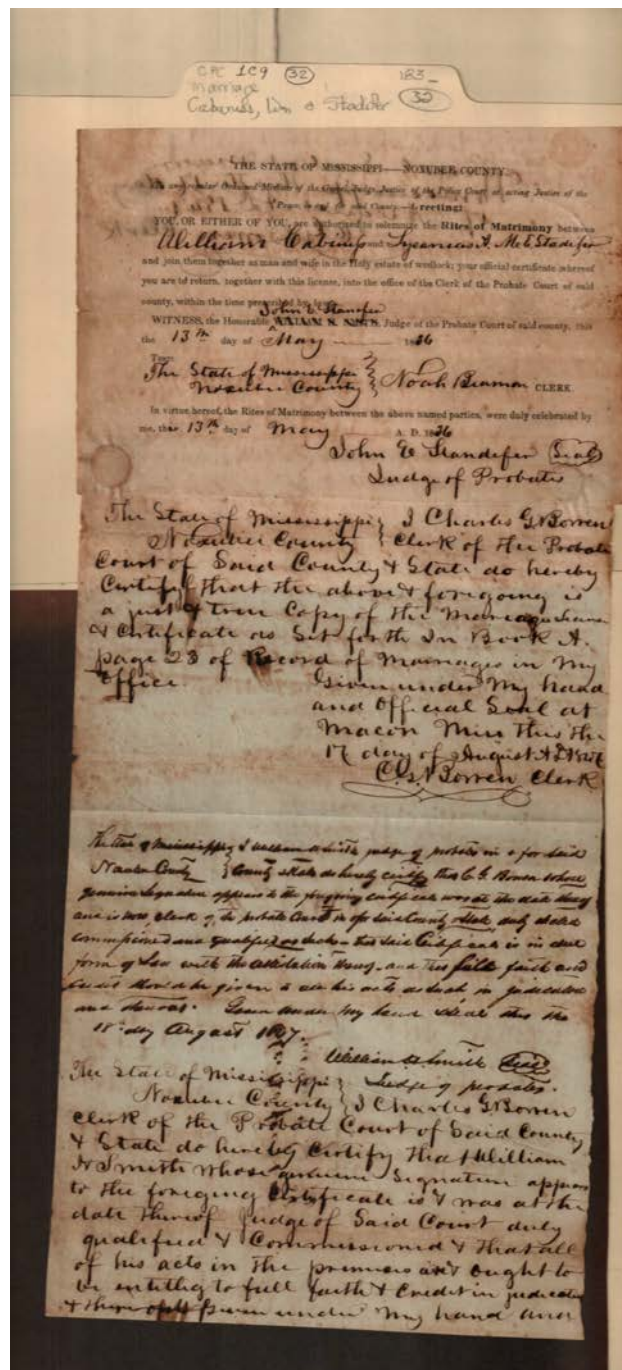 CPC 1C9 (32) 183_
marriage
Cabiness, Wm & Stadifer (32)
THE STATE OF MISSISSIPPI—NOXUBEE COUNTY
Ordained Minister of the Gospel, Judge, Justice of the Police Court or acting Justice of the
Peace in and for said County—Greeting:
YOU, OR EITHER OF YOU, are authorized to solemnize the Rites of Matrimony between
William Cabiness and
and join them together as man and wife in the Holy estate of wedlock; your official certificate whereof
you are to return, together with this license, into the office of the Clerk of the Probate Court of said
county, within the time prescribed by law.
John E Standefer
WITNESS, the Honorable Judge of the Probate Court of said county, this
the 13th day of May 1836
The State of Mississippi
Noxubee County Noah Beaman CLERK.
In virtue, hereof, the Rites of Matrimony between the above named parties, were duly celebrated by
me, this 13th day of May A. D. 1836
John E Standefer (Seal)
Judge of Probate
The State of Mississippi } I Charles G N Borren
Noxubee County } Clerk of the Probate
Court of Said County & State do hereby
Certify that the above & foregoing is
a just & true Copy of the Marriage
& Certificate as Set forth In Book A.
page 23 of Record of Marriages in My
Office. Given under My hand
and Official Seal at
Macon Miss this the
17 day of August A D
Borren Clerk
The State of Mississippi } I William H Smith judge of probates in & for said
Noxubee County } County & State do hereby certify that C. G. Borren whose
genuine Signature appears to the foregoing certificate was at the date thereof
and is now, clerk of the probate Court in & for said County & State duly elected
commissioned and qualified as such & that said Certificate is in due
form of Law with the attestation thereof, and that full faith and
credit should be given to all his acts as such in judicature
and thereout. Given under my hand & Seal this the
18th day August 1847.
William H Smith (Seal)
The State of Mississippi } Judge of probates.
Noxubee County } I Charles G N Borren
Clerk of the Probate Court of Said County
& State do hereby Certify that William
H Smith whose genuine Signature appears
to the foregoing Certificate is & was at the
date thereof Judge of Said Court duly
qualified & Commissioned & that all
of his acts in the premises are & ought to
be entitled to full faith & Credit in judicature
& thereout Given under My hand and